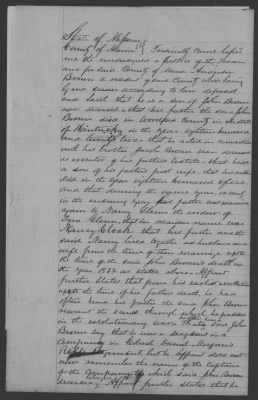 State of Missouri
County of
me the undersigned a Justice of the
and for said County of
Brown a resident of said County who being
by me sworn according to law deposes
and saith that he is a son of John Brown
now deceased that his father the said John
Brown died in Woodford County in the State
of Kentucky in the year eighteen hundred
and twenty two that he acted in connection
with his brother Brown now deceased
as executor of his fathers Estate that he is
a son of his fathers first wife that his mother
died in the year eighteen hundred
and that during the same year or early
in the ensuing year his father was married
again to Nancy Glenn the widow of
Tyra Glenn that her maiden name was
Nancy Cloak that his father and the
said Nancy lived together as husband and
wife from the time of their marriage up to
the time of the said John Browns death in
the year as stated above Affiant
further States that from his earliest recollection
up to the time of his fathers death he had
often heard his father the said John Brown
recount the scenes through which he passed
in the revolutionary war that said John
Brown say that he was a sergeant in a
Company in Colonel Daniel Morgans
Rifle Regiment but he affiant does not
now remember the name of the Captain
of the Company to which said John Brown
belonged Affiant further states that he